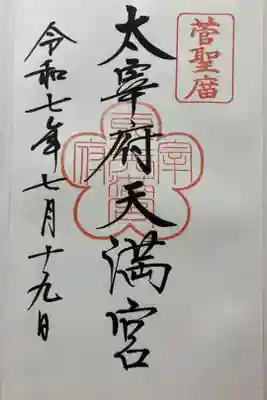 菅聖廟
太宰府天満宮
令和七年七月十九日